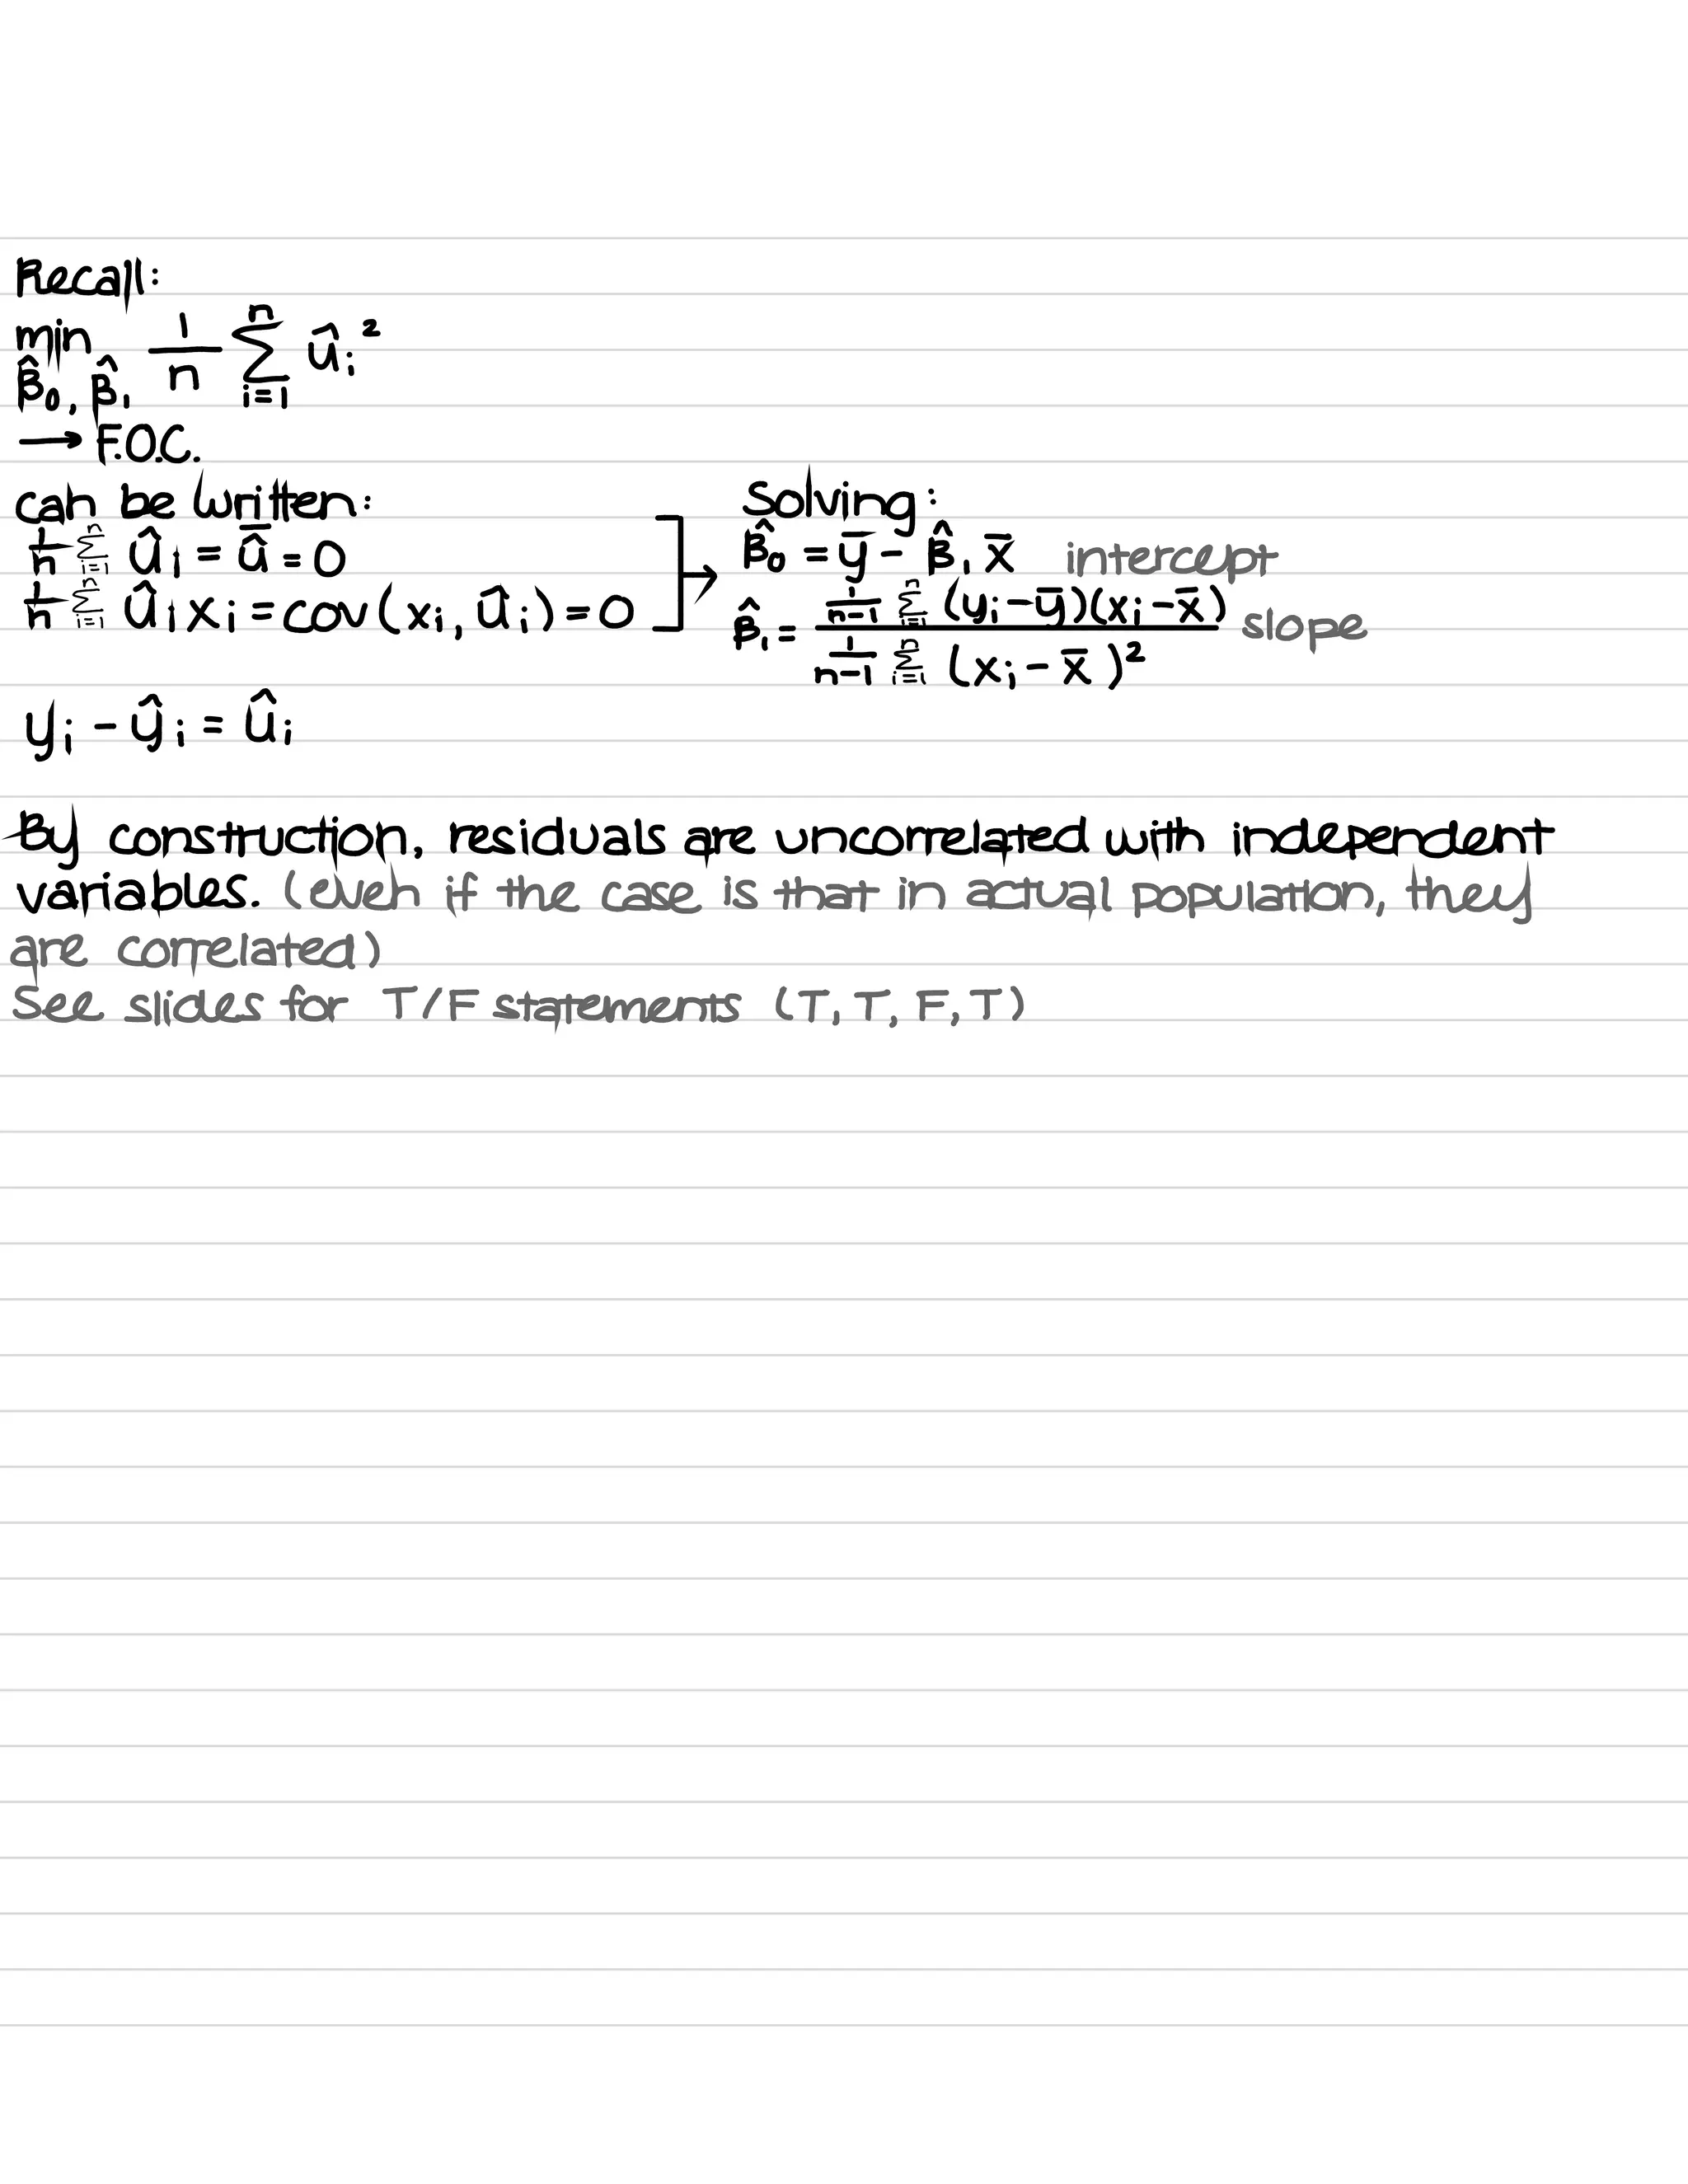 Recall:
min β̂₀, β̂₁ 1/n Σⁿᵢ₌₁ ûᵢ²
→ F.O.C.
can be written:
1/n Σⁿᵢ₌₁ ûᵢ = û̄ = 0
1/n Σⁿᵢ₌₁ ûᵢxᵢ = cov(xᵢ, ûᵢ) = 0
Solving:
β̂₀ = ȳ - β̂₁ x̄ intercept
β̂₁ = (1/(n-1) Σⁿᵢ₌₁ (yᵢ - ȳ)(xᵢ - x̄)) / (1/(n-1) Σⁿᵢ₌₁ (xᵢ - x̄)²) slope
yᵢ - ŷᵢ = ûᵢ
By construction, residuals are uncorrelated with independent
variables. (even if the case is that in actual population, they
are correlated)
See slides for T/F statements (T, T, F, T)